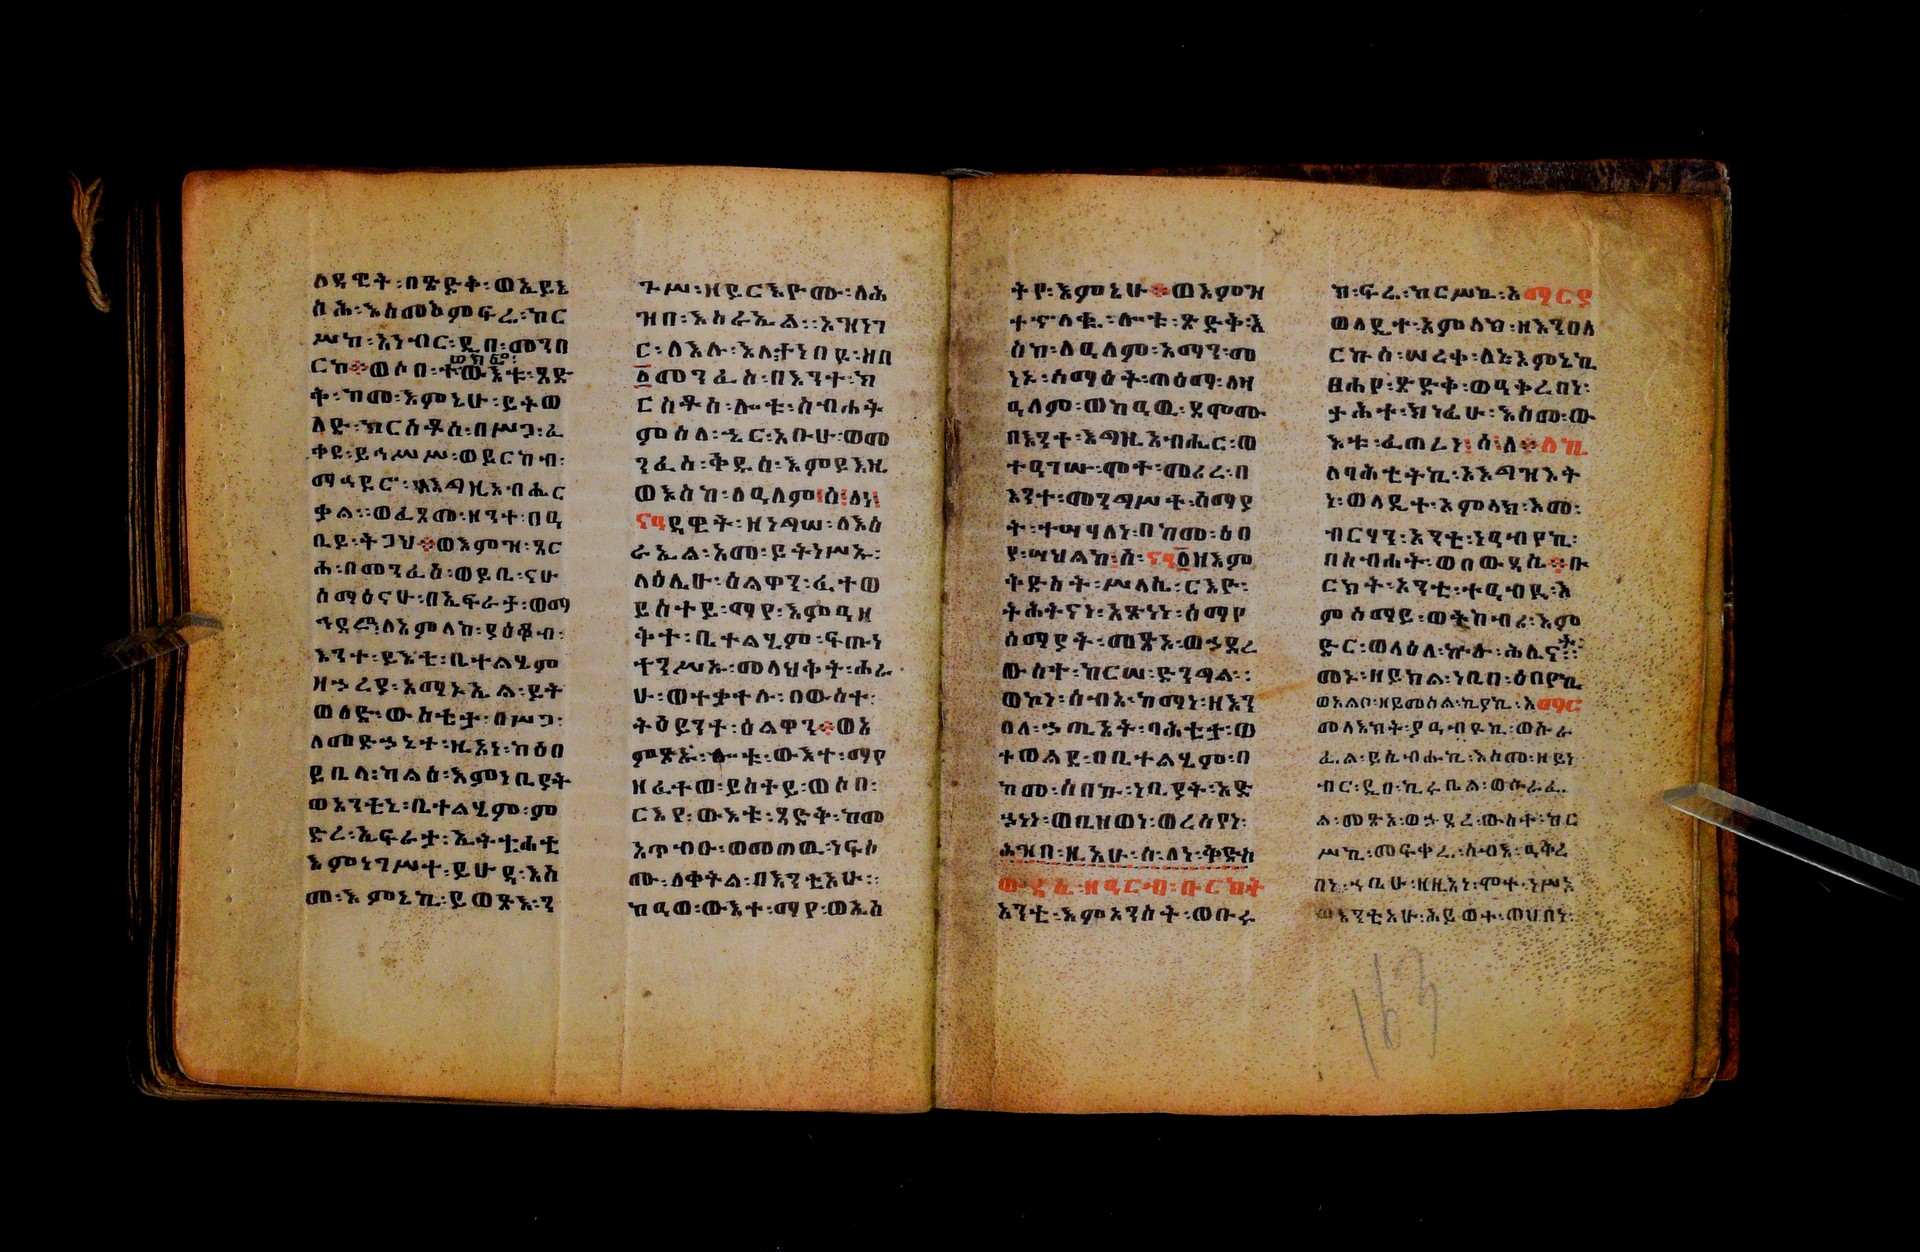 ለዳዊት፡በጽድቅ፡ወኢይኔ
ስሕ፡እስመ፡እምፍሬ፡ከር
ሥከ፡አነብር፡ዲበ፡መንበ
ወክፎ፡
ርከ፨ወሶበ፡ተውእቱ፡ጻድ
ቅ፡ከመ፡እምኔሁ፡ይትወ
ለድ፡ክርስቶስ፡በሥጋ፡ፈ
ቀደ፡ይኅሥሥ፡ወይርከብ፡
ማኅደር፡ለእግዚአብሔር
ቃል፡፡ወፈጸመ፡ዘንተ፡በዓ
ቢይ፡ትጋህ፨ወእምዝ፡ጸር
ሐ፡በመንፈስ፡ወይቤ፡ናሁ
ሰማዕናሁ፡በኤፍራታ፡ወማ
ኅደሩ፡ለአምላከ፡ያዕቆብ፡
እንተ፡ይእቲ፡ቤተልሄም
ዘኃረያ፡አማኑኤል፡ይት
ወለድ፡ውስቴታ፡በሥጋ፡
ለመድኃኒተ፡ዚአነ፡ከዕበ
ይቤላ፡ካልዕ፡እምነቢያት
ወአንቲኒ፡ቤተልሄም፡ም
ድረ፡ኤፍራታ፡ኢትቴሐቲ
እምነገሥተ፡ይሁዳ፡እስ
መ፡እምኔኪ፡ይወጽእ፡ን
ጉሥ፡ዘይርእዮሙ፡ለሕ
ዝበ፡እስራኤል፡፡አዝነገ
ር፡ለእሉ፡እለ፡ተነበዩ፡ዘበ
፩መንፈስ፡በእንተ፡ክ
ርስቶስ፡ሎቱ፡ስብሐት
ምስለ፡ኄር፡አቡሁ፡ወመ
ንፈስ፡ቅዱስ፡እምይእዜ
ወእስከ፡ለዓለም፡ሰ፡ለነ፡
ዳዊት፡ዘነግሠ፡ለእስ
ራኤል፡አመ፡ይትነሥኡ፡
ላዕሌሁ፡ዕልዋን፡ፈተወ
ይስተይ፡ማየ፡እምዓዘ
ቅተ፡ቤተልሄም፡ፍጡነ
ተንሥኡ፡መላህቅት፡ሐራ
ሁ፡ወተቃተሉ፡በውስተ፡
ትዕይንተ፡ዕልዋን፨ወአ
ምጽኡ፡ሎቱ፡ውእተ፡ማየ
ዘፈተወ፡ይስተይ፡ወሶበ፡
ርእየ፡ውእቱ፡ጻድቅ፡ከመ
አጥብዑ፡ወመጠዉ፡ነፍሶ
ሙ፡ለቀትል፡በእንቲአሁ፡፡
ከዓወ፡ውእተ፡ማየ፡ወኢስ
ትየ፡እምኔሁ፨ወእምዝ
ተኆለቈ፡ሎቱ፡ጽድቅ፡እ
ስከ፡ለዓለም፡አማን፡መ
ነኑ፡ሰማዕት፡ጠዕማ፡ለዛ
ዓለም፡ወከዓዉ፡ደሞሙ
በእንተ፡እግዚአብሔር፡ወ
ተዓገሡ፡ሞተ፡መሪረ፡በ
እንተ፡መንግሥተ፡ሰማያ
ት፡ተሣሃለነ፡በከመ፡ዕበ
የ፡ሣህልከ፡ሰ፡፩ዘእም
ትድስት፡ሥላሴ፡ርእዮ፡
ትሕትናነ፡አጽነነ፡ሰማየ
ሰማያት፡መጽአ፡ወኃደረ
ውስተ፡ከርሠ፡ድንግል፡፡
ወኮነ፡ሰብአ፡ከማነ፡ዘእን
በለ፡ኃጢአት፡ባሕቲታ፡ወ
ተወልደ፡በቤተልሄም፡በ
ከመ፡ሰበኩ፡ነቢያት፡አድ
ኃነነ፡ወቤዘወነ፡ወረሰየነ፡
ሕዝበ፡ዚአሁ፡ሰ፡ለነ፡ቅድስ
ውዳሴ፡ዘዓርብ፡ቡርክት
አንቲ፡እምአንስት፡ወቡሩ
ክ፡ፍሬ፡ከርሥኪ፡ኦማርያ
ወላዲተ፡አምላክ፡ዘእንበለ
ርኩስ፡ሠረቀ፡ለነ፡እምኔኪ
ፀሐየ፡ጽድቅ፡ወዓቅረበነ፡
ታሕተ፡ክነፊሁ፡እስመ፡ው
እቱ፡ፈጠረነ፡ሰ፡ለ፨ለኪ
ለባሕቲትኪ፡እእግዝእት
ነ፡ወላዲተ፡አምላክ፡እመ፡
ብርሃን፡አንቲ፡ነዓብየኪ፡
በስብሐት፡ወበውዳሴ፨ቡ
ርክት፡አንቲ፡ተዓብዪ፡እ
ምሰማይ፡ወትከብሪ፡እም
ድር፡ወላዕለ፡ኵሉ፡ሕሊናት፡፡
መኑ፡ዘይክል፡ነቢበ፡ዕበየኪ
ወአልቦ፡ዘይመስል፡ኪያኪ፡ኦማር
መላእክት፡ያዓብዩኪ፡ወሱራ
ፌል፡ይሴብሑኪ፡እስመ፡ዘይነ
ብር፡ዲበ፡ኪሩቤል፡ወሱራፌ
ል፡መጽአ፡ወኃደረ፡ውስተ፡ከር
ሥኪ፡መፍቀሬ፡ሰብእ፡ዓቅረ
በነ፡ኀቤሁ፡ዘዚአነ፡ሞተ፡ነሥአ
ወእንቲአሁ፡ሕይወተ፡ወሀበነ፡
163